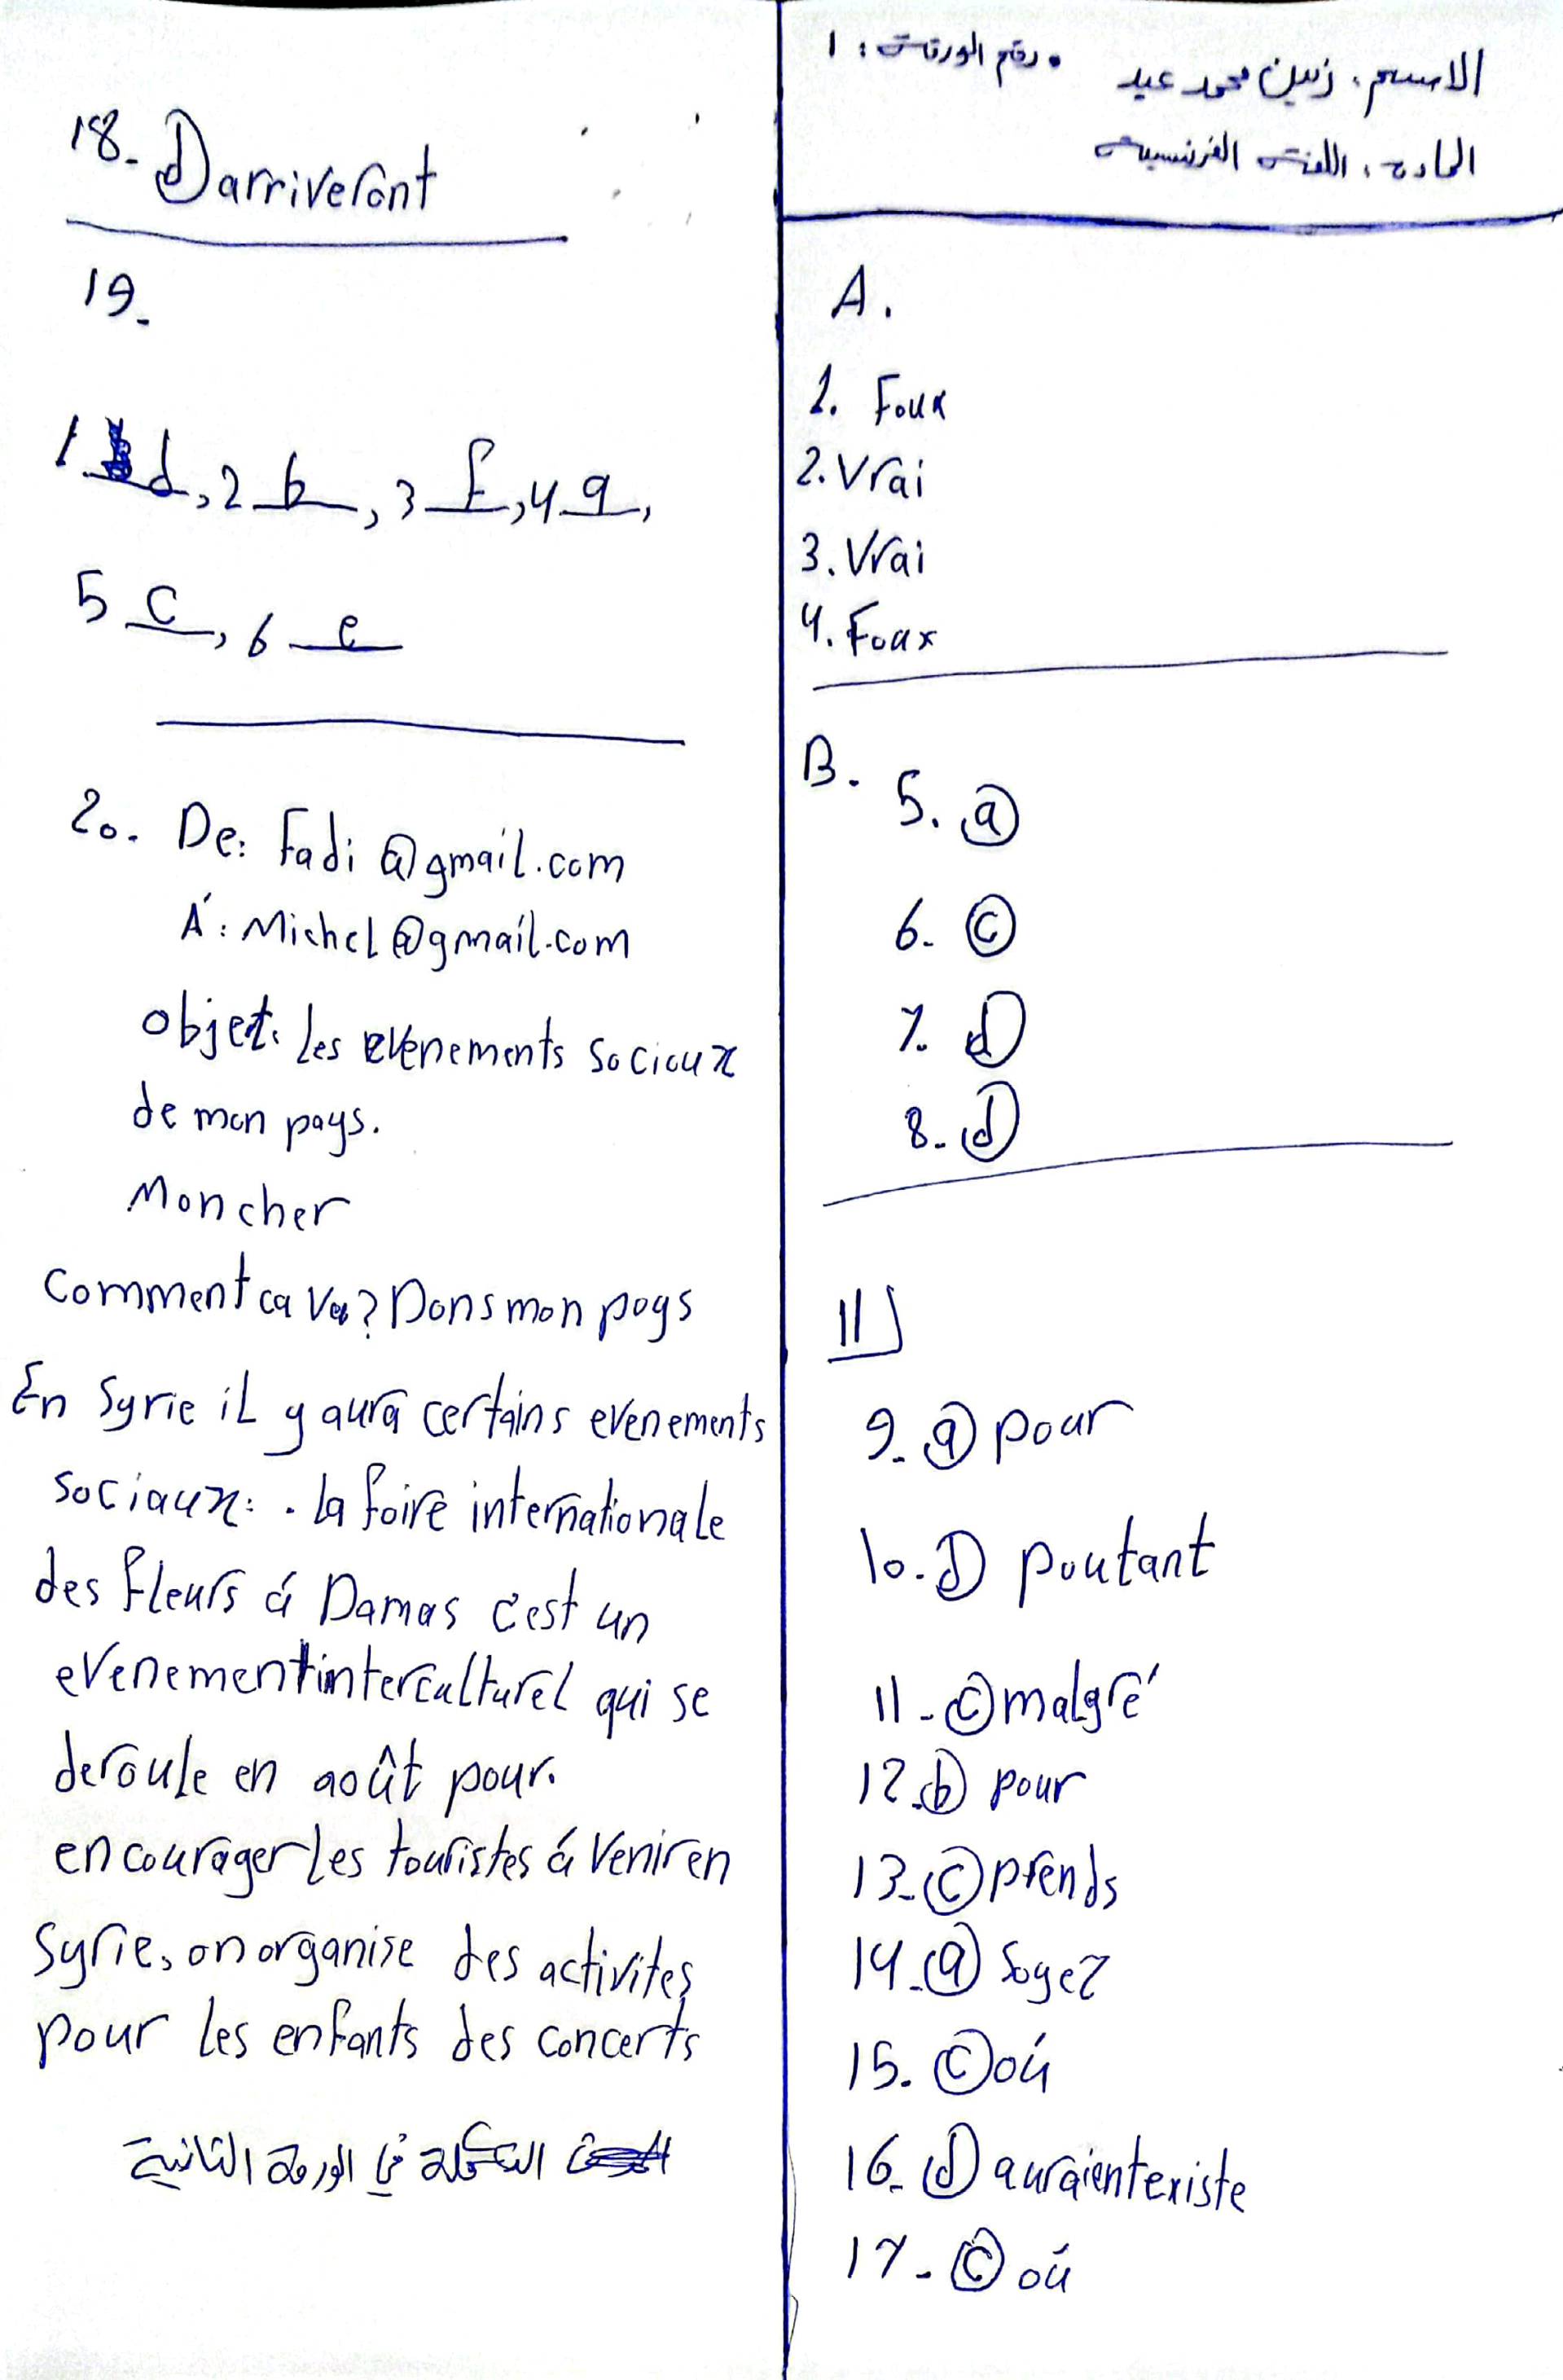 الاسم: زين محمد عيد
• رقم الورقة: 1
المادة: اللغة الفرنسية
A.
1. Foux
2. Vrai
3. Vrai
4. Foax
B.
5. a
6. c
7. d
8. d
II
9. a pour
10. D poutant
11. c malgré
12. b pour
13. c prends
14. a Soyez
15. c oú
16. d auraient existe
17. c oú
18. D arriveront
19.
1 d, 2 b, 3 f, 4 a,
5 c, 6 e
20. De: Fadi @gmail.com
Á: Michel @gmail.com
objet: les evenements sociaux
de mon pays.
Mon cher
Comment ca va? Dans mon pays
En Syrie il y aura certains evenements
sociaux: . la foire internationale
des fleurs á Damas c'est un
evenement interculturel qui se
deroule en août pour.
encourager les touristes á venir en
Syrie, on organise des activites
pour les enfants des concerts
التكملة في الورقة الثانية